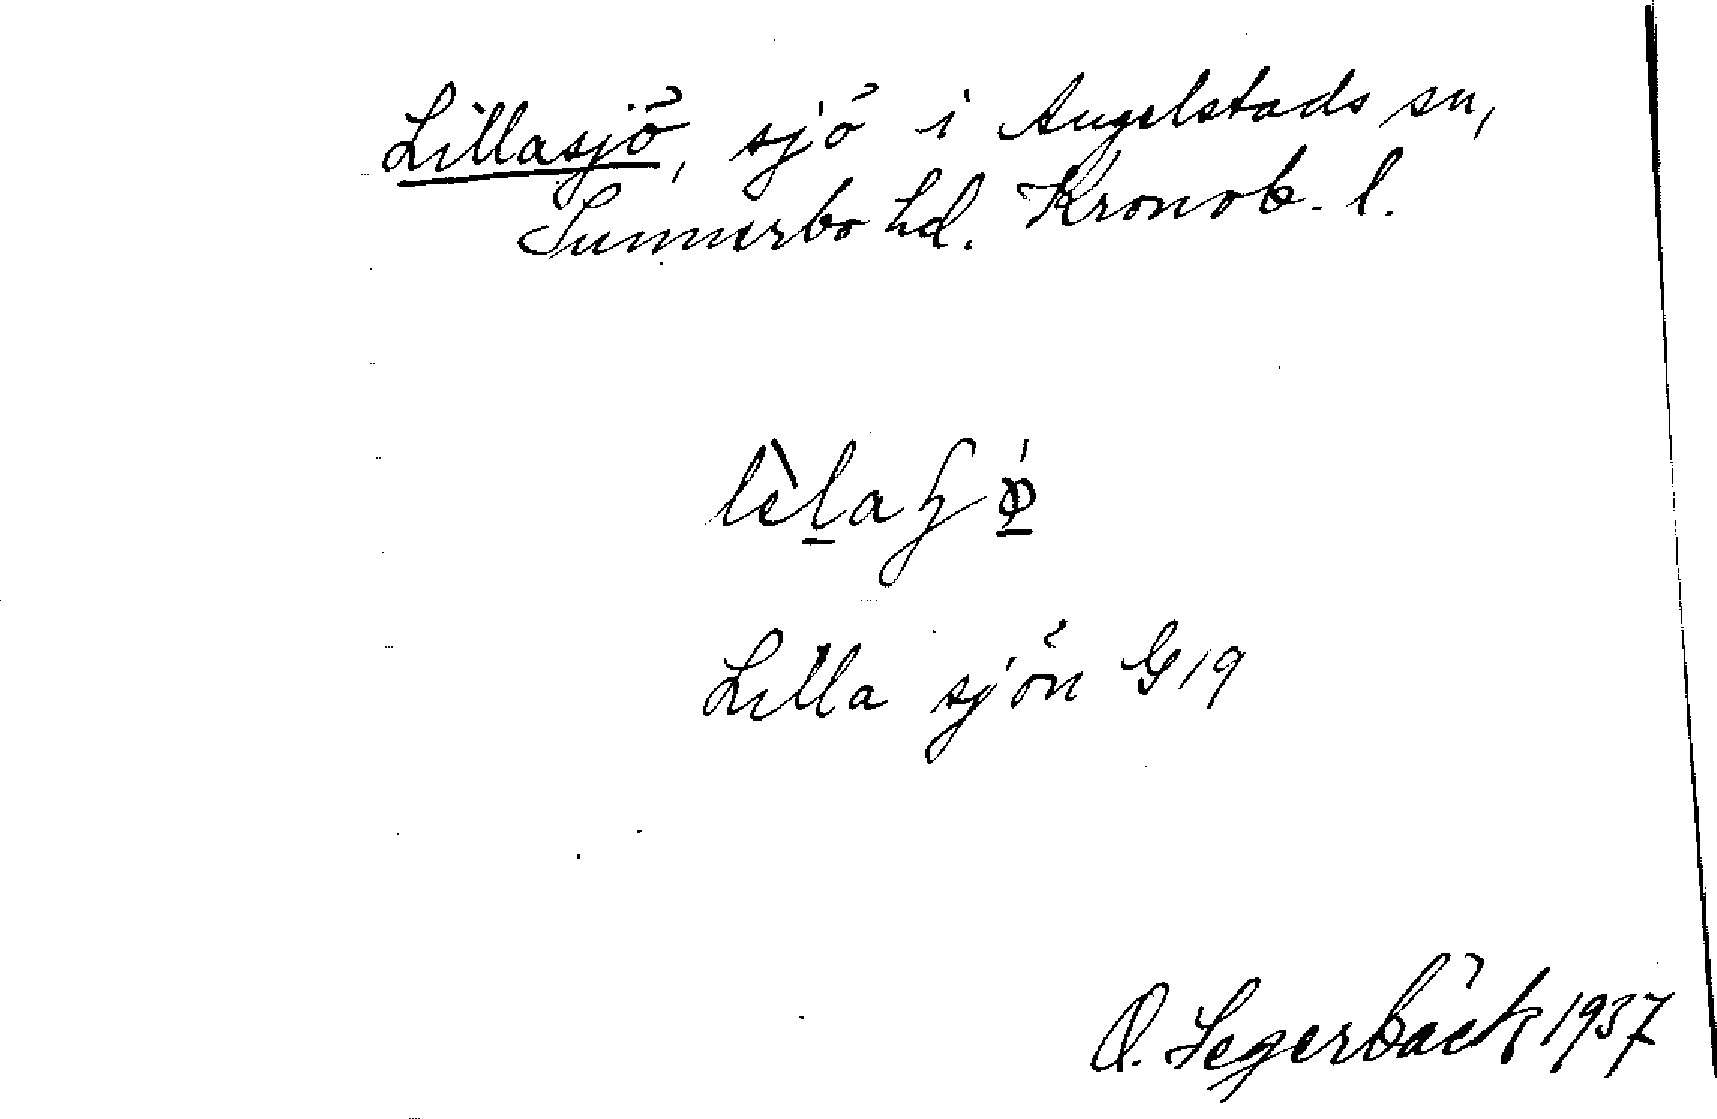 Lillasjö, sjö i Angelstads sn,
Sunnerbo hd. Kronob. l.
Lilla sjön G19
O. Segerbäck 1937